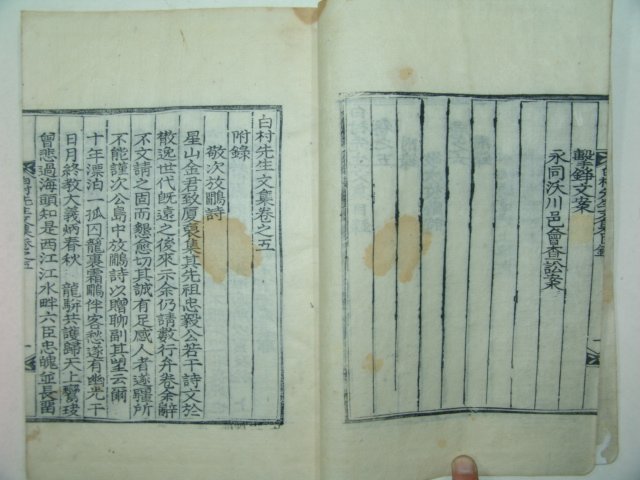 擊錚文案
永同沃川邑會查訟案
白村先生文集卷之五
附錄
敬次放鷴詩
星山金君致厦裒集其先祖忠毅公若干詩文於
散逸世代旣遠之後來示余仍請數行弁卷余辭
不文請之固而懇愈切其誠有足感人者遂疆所
不能謹次公島中放鷴詩以贈聊副其望云爾
十年漂泊一孤囚龍裏霜鷴伴客愁遂有幽光干
日月終教大義炳春秋 龍駢共護歸天上鸞
曾悲過海頭知是西江江水畔六臣忠魄並長留